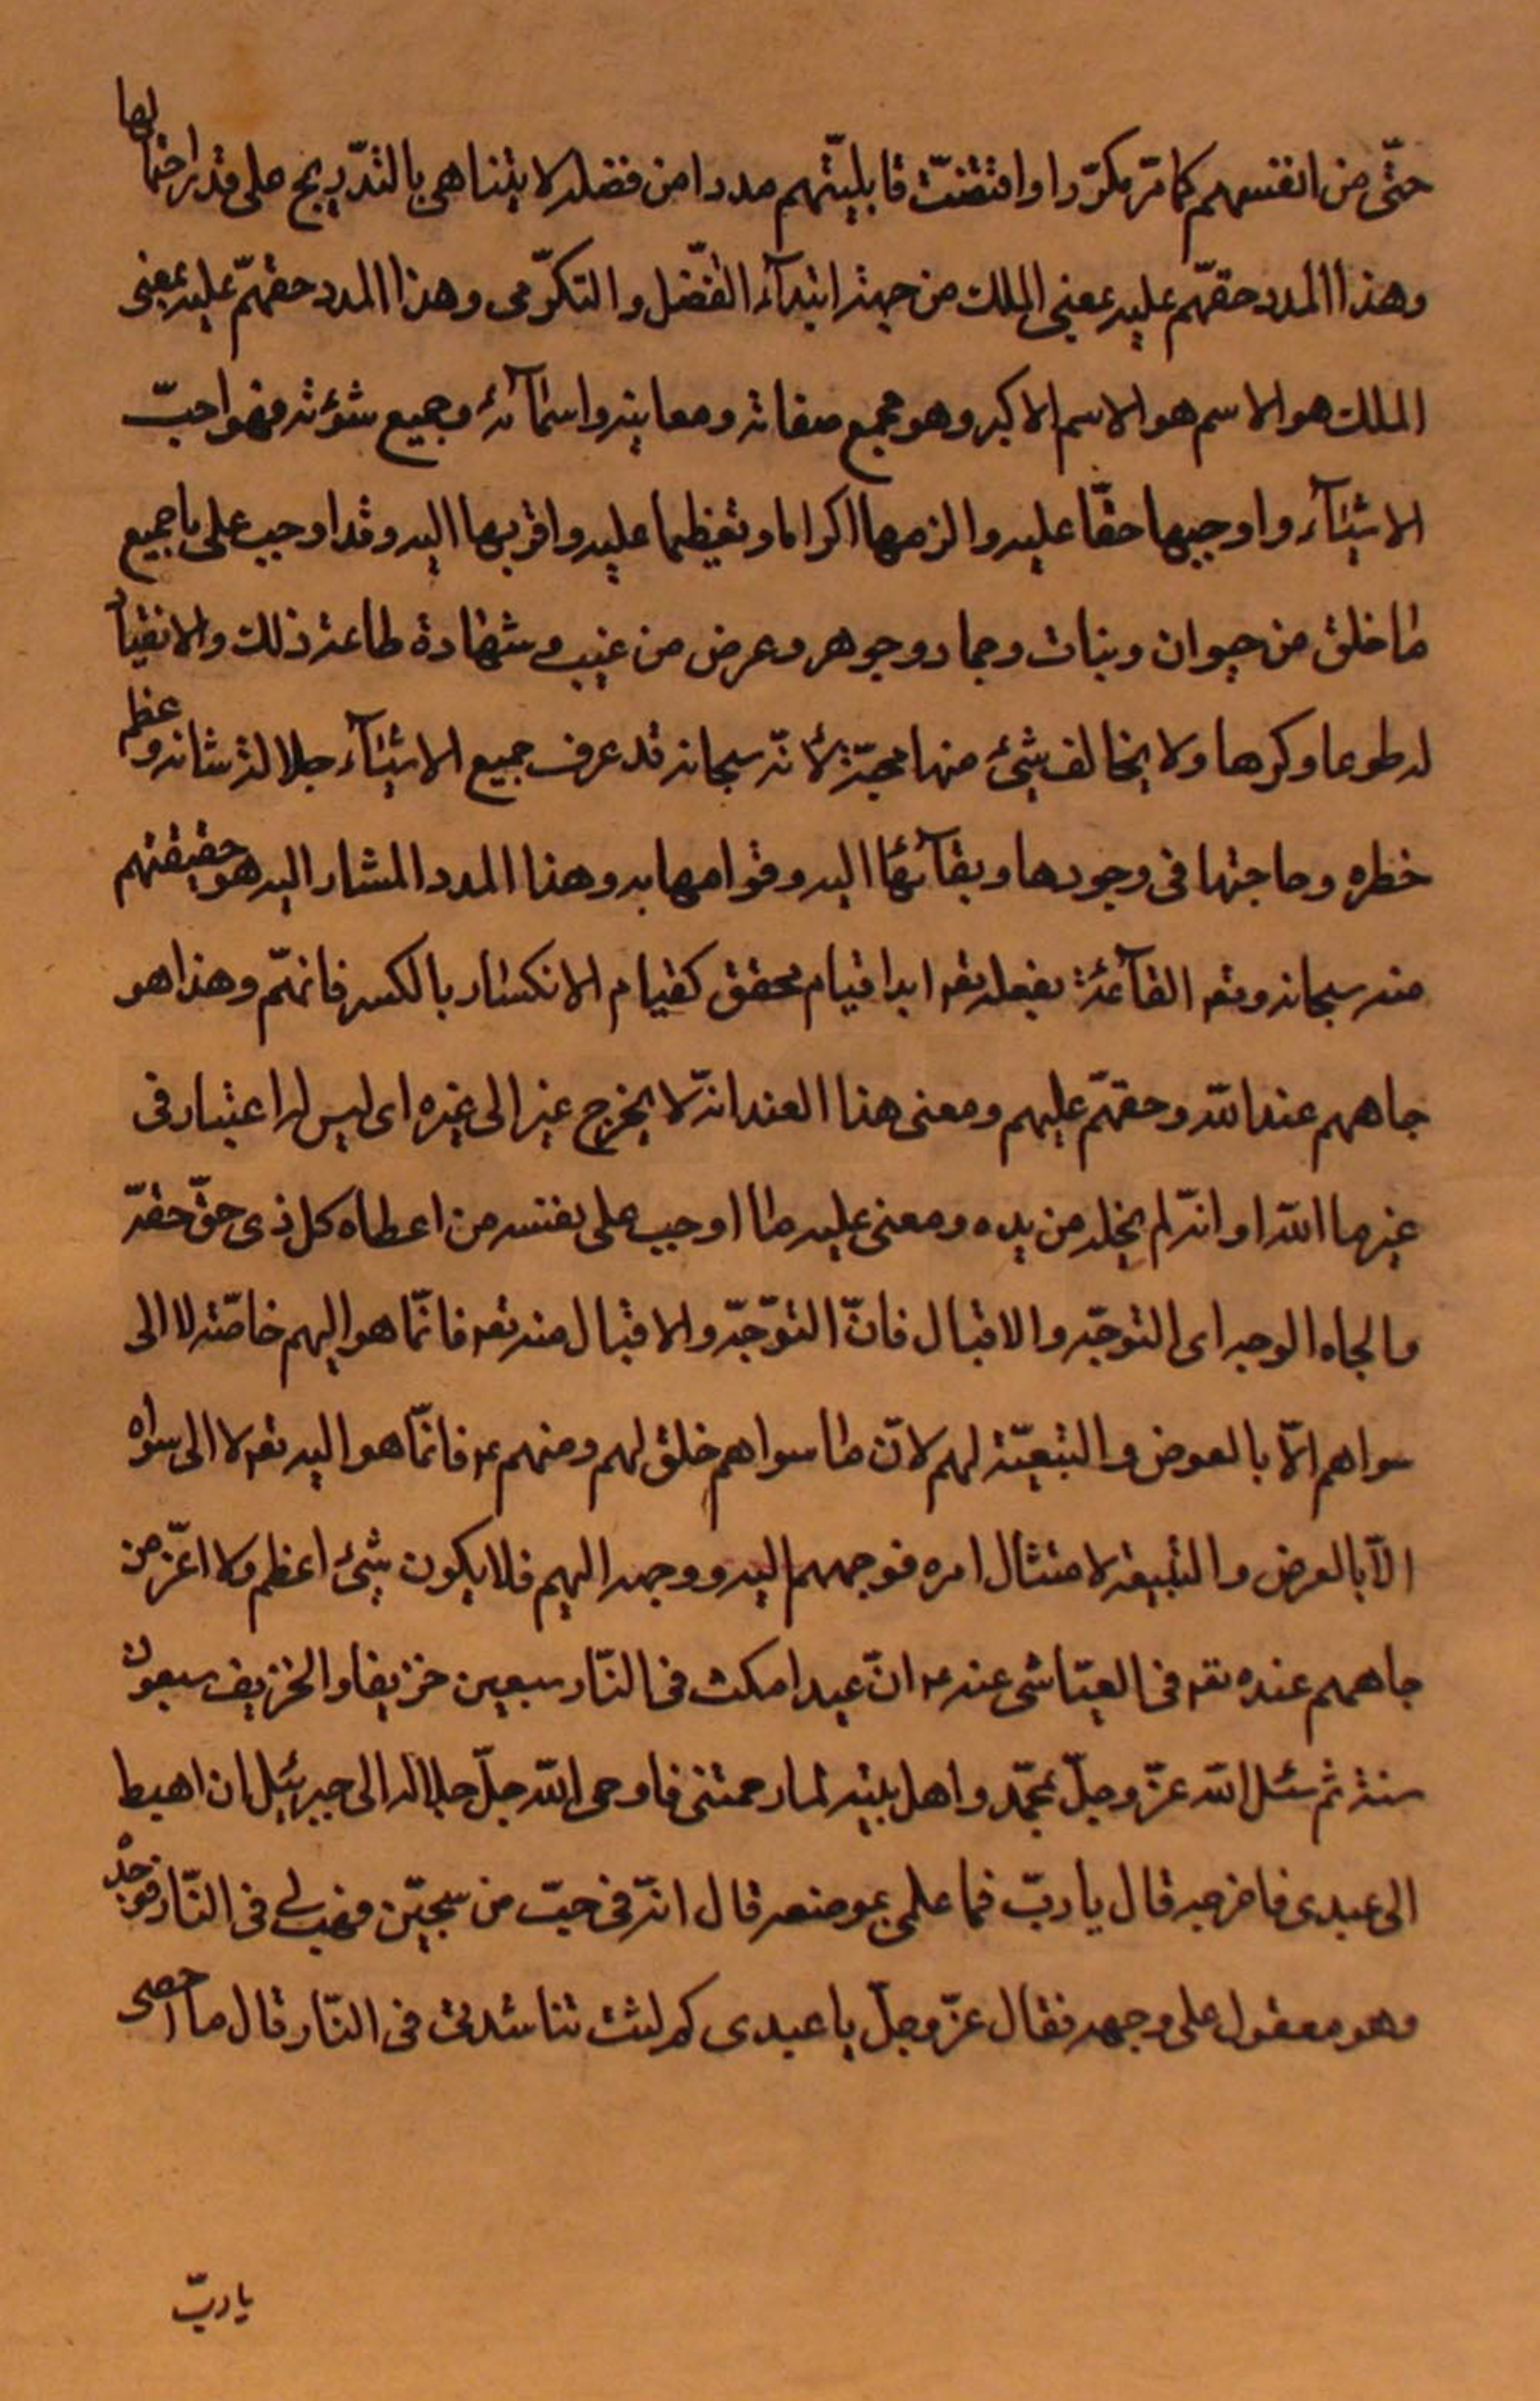 حتّى من انفسهم كما مرّ مكرّرا واقتضت قابليّتهم مددا من فضله لا يتناهى بالتدّريج على قدر احتمالها
وهذا المدد حقهّم عليه بمعنى الملك من جهة ابتدآء التفّضل والتكرّمى وهذا المدد حقهّم عليه بمعنى
الملك هو الاسم هو الاسم الاكبر وهو مجمع صفاته ومعانيه واسمآئه وجميع شؤنه فهو احبّ
الاشيآء واوجبها حقّا عليه والزمها اكراما وتعظيما عليه واقربها اليه وقد اوجب على جميع
ما خلق من حيوان ونبات وجماد وجوهر وعرض من غيب وشهادة طاعة ذلك والانقياد
له طوعا وكرها ولا يخالف شئ منها محبّته لأنّه سبحانه قد عرف جميع الاشيآء جلالة شانه وعظم
خطره وحاجتها فى وجودها وبقآئها اليه وقوامها به وهذا المدد المشار اليه هو حقيقتهم
منه سبحانه وتعه القآئمة بفعله تعه ابدا قيام تحقق كقيام الانكسار بالكسر فافهّم وهذا هو
جاههم عند الله وحقهّم عليهم ومعنى هذا العند انّه لا يخرج عنه الى غيره اى ليس له اعتبار فى
غيرها الله او انّه لم يخله من يده ومعنى عليه ما اوجب على نفسه من اعطاه كل ذى حقّ حقّه
والجاه الوجه اى التوجّه والاقبال فانّ التوّجّه والاقبال منه تعه فانّما هو اليهم خاصّة لا الى
سواهم الّا بالعوض والتبعيّة لهم لانّ ما سواهم خلق لهم ومنهم ع فانّما هو اليه تعه لا الى سواه
الّا بالعرض والتبيعة لامتثال امره فوجههم اليه ووجهه اليهم فلا يكون شئ اعظم ولا اعّز من
جاههم عنده تعه فى العيّاشى عنه ع انّ عبدا مكث فى النّار سبعين خريفا والخريف سبعون
سنة ثم سئل الله عزّ وجلّ بمحّمد واهل بيته لما رحمتنى فاوحى الله جلّ جلاله الى جبرئيل ان اهبط
الى عبدى فاخرجه قال يا ربّ فما علمى بموضعه قال انّه فى جبّ من سجيّن فهبط فى النّار فوجده
وهو معقول على وجهه فقال عزّ وجلّ يا عبدى كم لبثت تناشدنى فى النّار قال ما احصى
يا ربّ